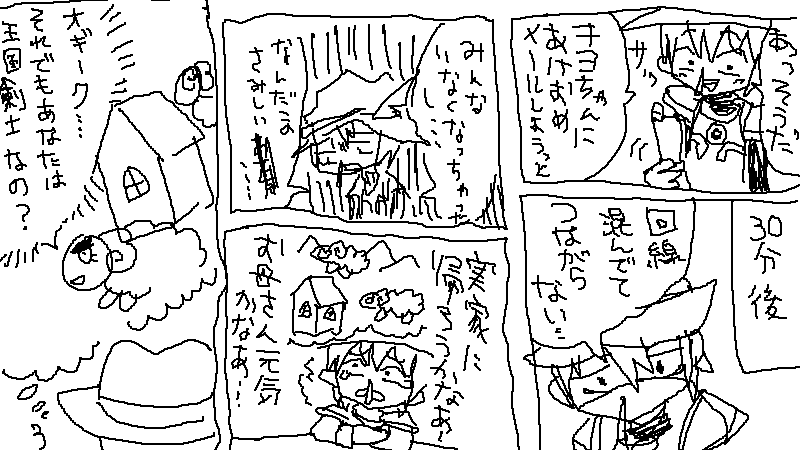 あっそうだ
キヨちゃんに
あけおめ
メールしようっと
サッ
30分後
回線
混んでて
つながら
ない…
みんな
いなくなっちゃった
し…
なんだか
さみしい
……
実家に
帰ろうかなあ…
お母さん元気
かなあ…
オギーク…
それでもあなたは
王国剣士なの？